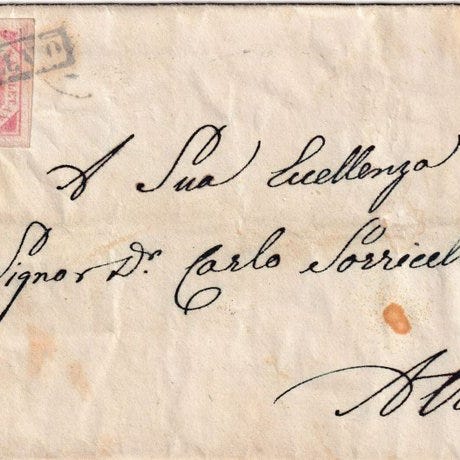 A Sua Eccellenza
Signor Dr. Carlo Sorricel